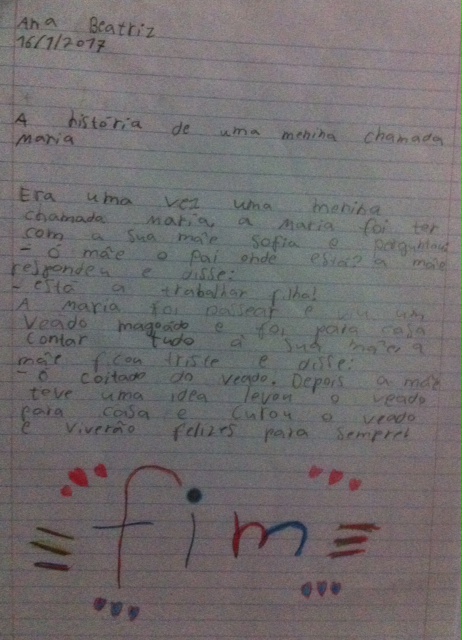 Ana Beatriz
16/1/2017
A história de uma menina chamada
Maria
Era uma vez uma menina
chamada Maria, a Maria foi ter
com a sua mãe Sofia e perguntou
- ó mãe o pai onde está? a mãe
respondeu e disse:
- está a trabalhar filha!
A Maria foi passear e viu um
veado magoado e foi para casa
contar tudo à sua mãe a
mãe ficou triste e disse:
- ó coitado do veado. Depois a mãe
teve uma idea levou o veado
para casa e curou o veado
e viverão felizes para sempre!
fim